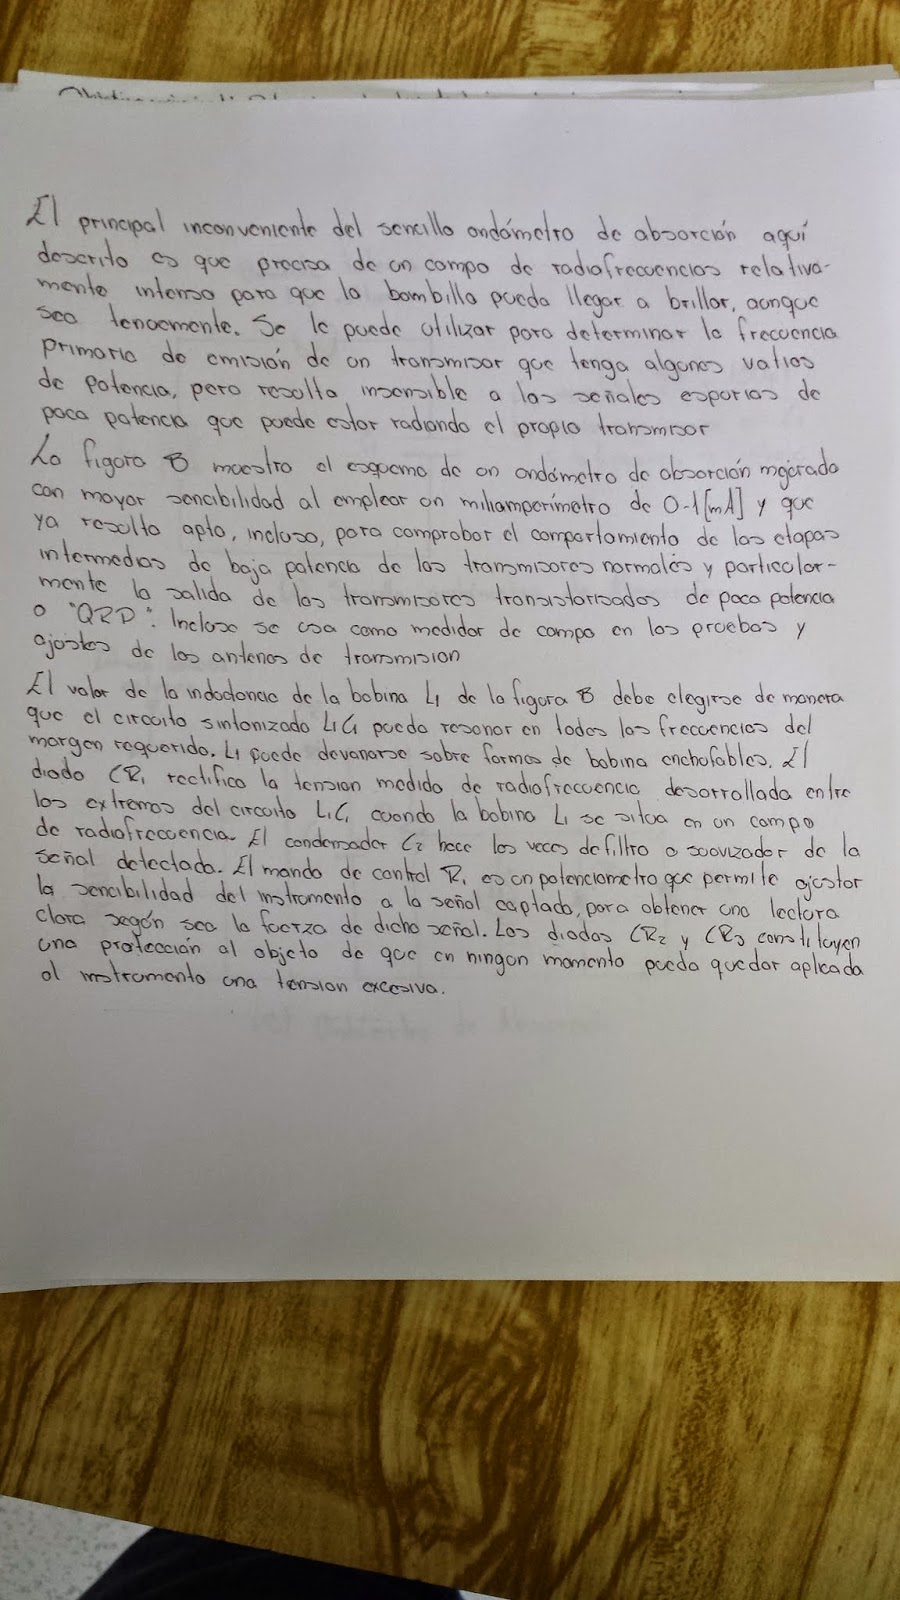 El principal inconveniente del sencillo ondómetro de absorción aquí
descrito es que precisa de un campo de radiofrecuencias relativa-
mente intenso para que la bombilla pueda llegar a brillar, aunque
sea tenuemente. Se le puede utilizar para determinar la frecuencia
primaria de emisión de un transmisor que tenga algunos vatios
de potencia, pero resulta insensible a las señales espurias de
poca potencia que puede estar radiando el propio transmisor
La figura B muestra el esquema de un ondómetro de absorción mejorado
con mayor sencibilidad al emplear un miliamperímetro de 0-1[mA] y que
ya resulta apto, incluso, para comprobar el comportamiento de las etapas
intermedias de baja potencia de los transmisores normales y particular-
mente la salida de los transmisores transistorizados de poca potencia
o "QRP". Incluso se usa como medidor de campo en las pruebas y
ajustes de los antenas de transmision
El valor de la inductancia de la bobina L1 de la figura B debe elegirse de manera
que el circuito sintonizado L1C1 pueda resonar en todas las frecuencias del
margen requerido. L1 puede devanarse sobre formas de bobina enchufables. El
diodo CR1 rectifica la tension medida de radiofrecuencia desarrollada entre
los extremos del circuito L1C1 cuando la bobina L1 se situa en un campo
de radiofrecuencia. El condensador C2 hace las veces de filtro o suavizador de la
señal detectada. El mando de control R1 es un potenciometro que permite ajustar
la sencibilidad del instrumento a la señal captada, para obtener una lectura
clara según sea la fuerza de dicha señal. Los diodos CR2 y CR3 constituyen
una protección al objeto de que en ningun momento pueda quedar aplicada
al instrumento una tension excesiva.